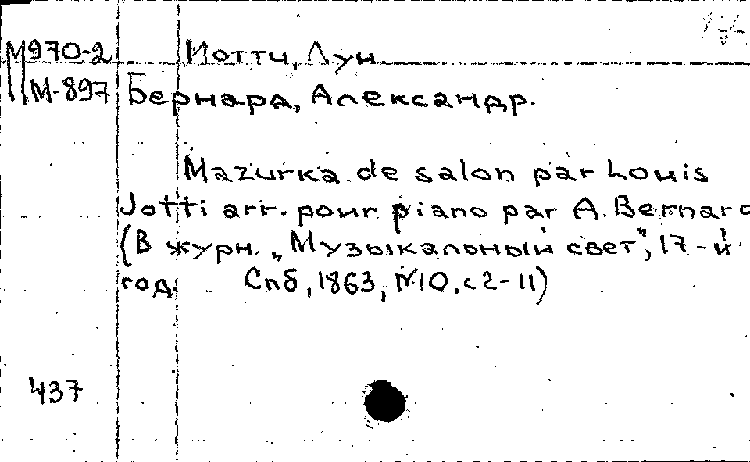 М970-2 Иотти, Луи
М-897 Бернард, Александр.
Mazurka de salon par Louis
Jotti arr. pour piano par A. Bernard
(В журн. „Музыкальный свет", 17-й
год. Спб, 1863, №10, с 2-11)
437